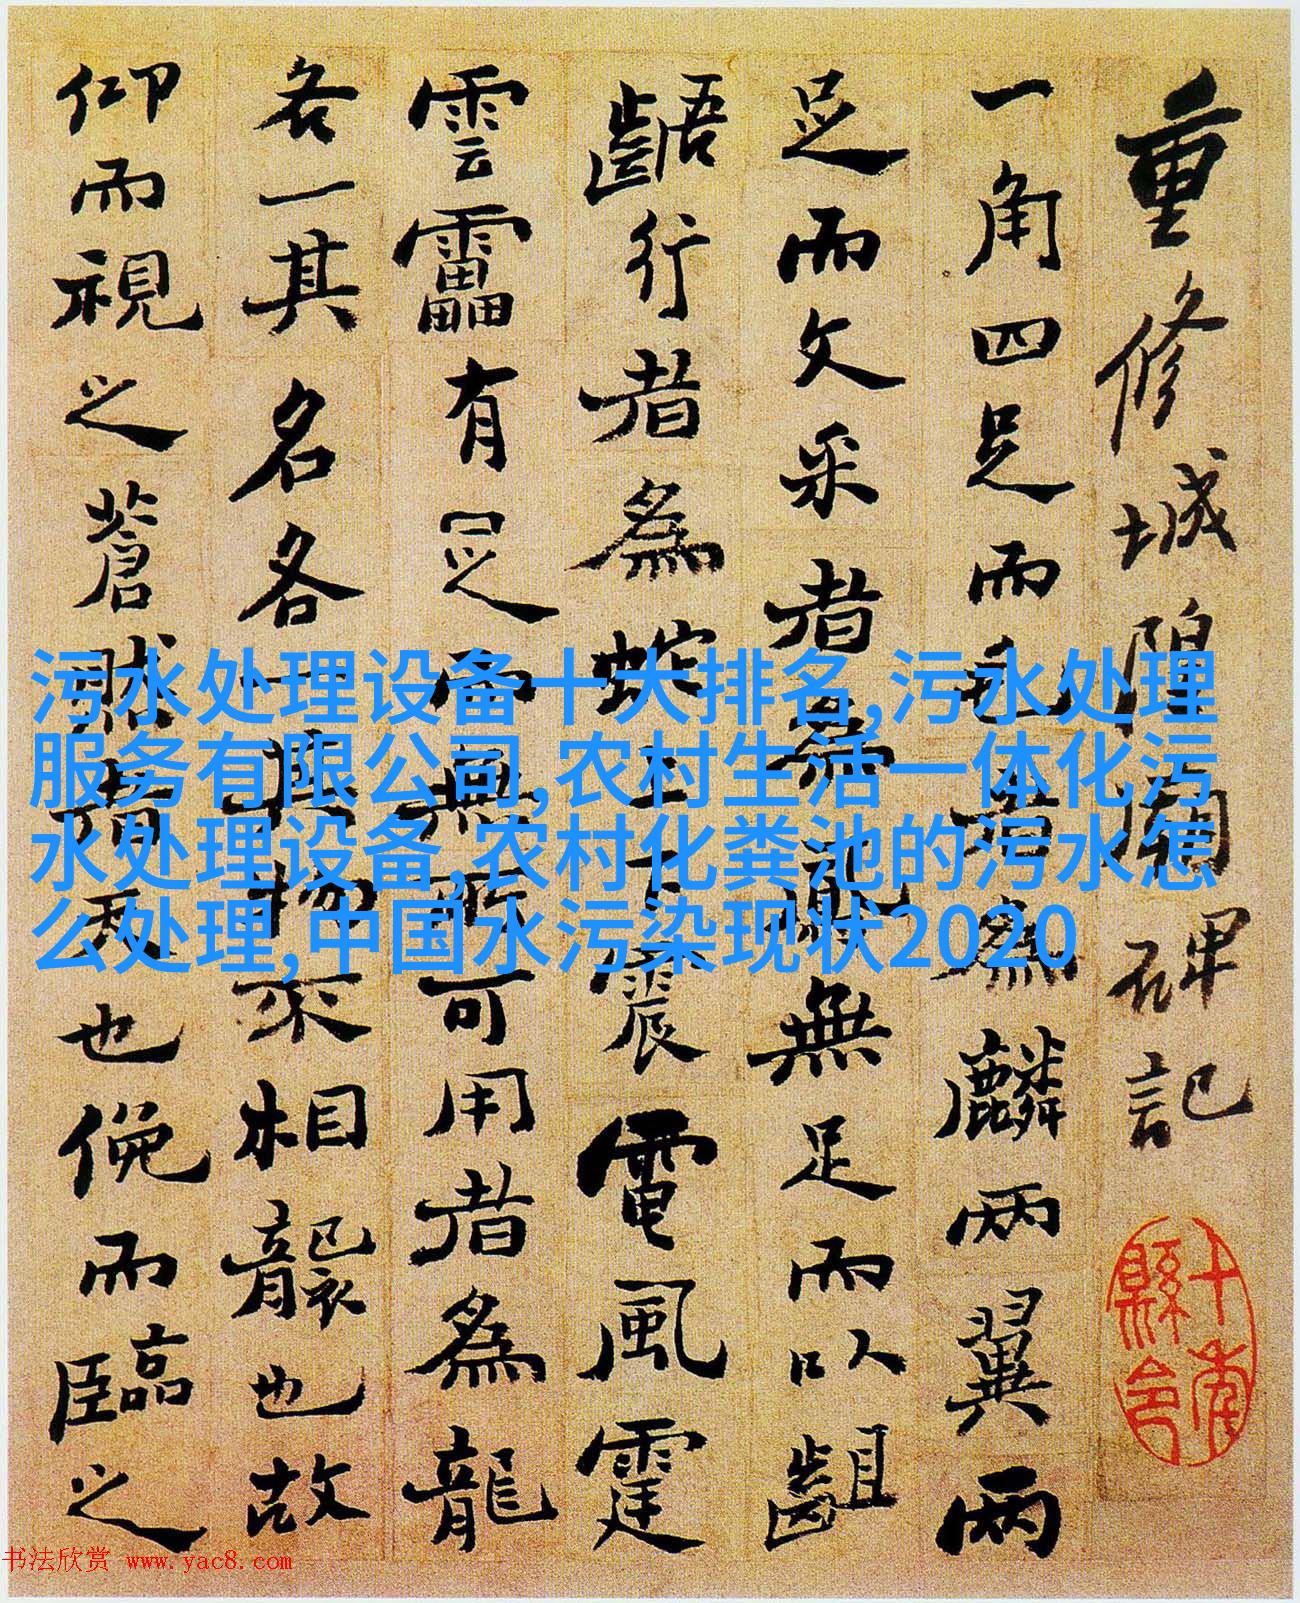 重修城隍廟碑記
一角四足而毛者為麟兩翼兩
足而文采者為鳳無足而以齟
齬行者為蛇上下震電風霆
雲靁有足而無所可用者為龍
各一其名各一其物不相襲也故
仰而視之蒼然者天也俛而臨之
十年縣令
污水处理设备十大排名,污水处理
服务有限公司,农村生活一体化污
水处理设备,农村化粪池的污水怎
么处理,中国水污染现状2020
书法欣赏 www.yac8.com